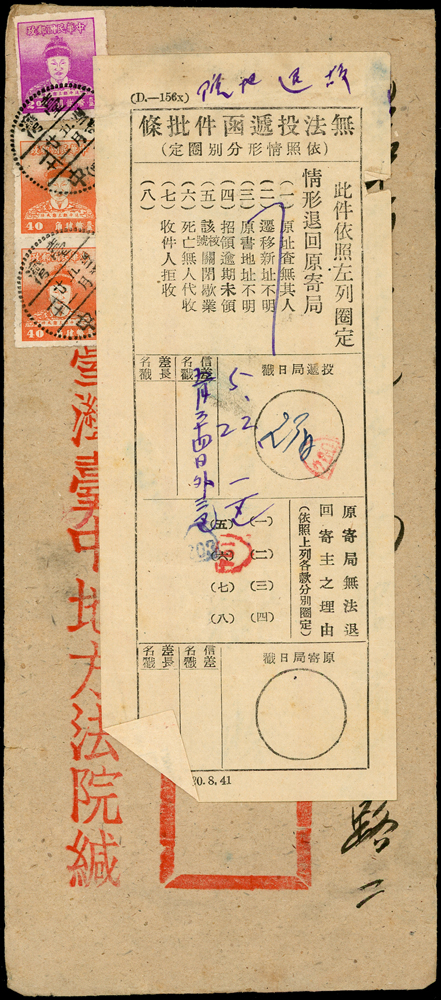 中華民國郵政
20
40
40
(D.—156x)
無法投遞函件批條
(依照情形分別圈定)
此件依照左列圈定
情形退回原寄局
(一)原址查無其人
(二)遷移新址不明
(三)原書地址不明
(四)招領逾期未領
(五)該號被關閉歇業
(六)死亡無人代收
(七)收件人拒收
(八)
投遞局日戳
信差名戳
差長名戳
5.22
原寄局無法退
回寄主之理由
(依照上列各款分別圈定)
(一)(二)(三)(四)
(五)(六)(七)(八)
原寄局日戳
信差名戳
差長名戳
20.8.41
臺灣臺中地方法院緘
路二